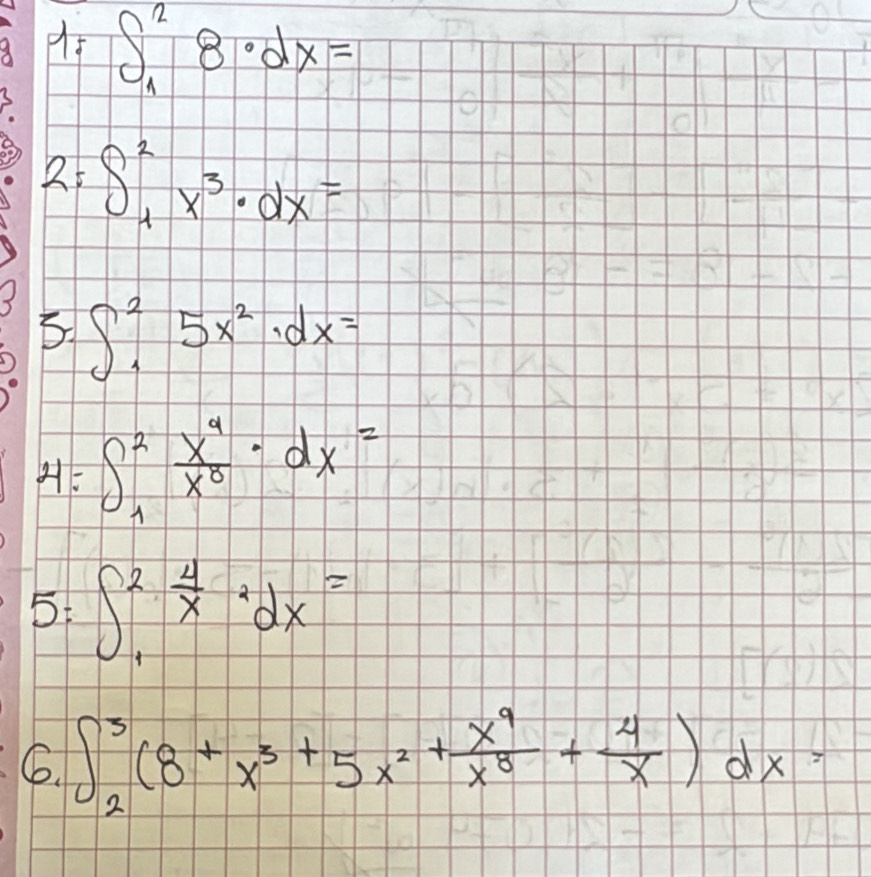 1: ∫₁² 8 · dx =
2: ∫₁² x³ · dx =
3. ∫₁² 5x² · dx =
4: ∫₁² x⁹/x⁸ · dx =
5: ∫₁² 4/x · dx =
6. ∫₂³ (8 + x³ + 5x² + x⁹/x⁸ + 4/x) dx =